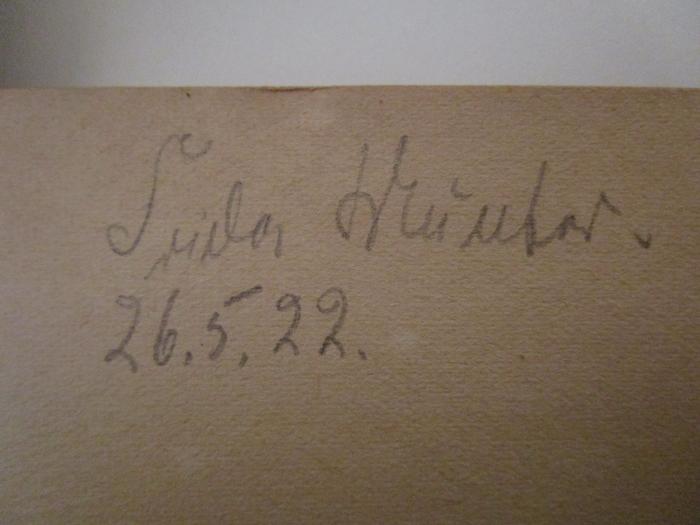 Frida Münter.
26.5.22.